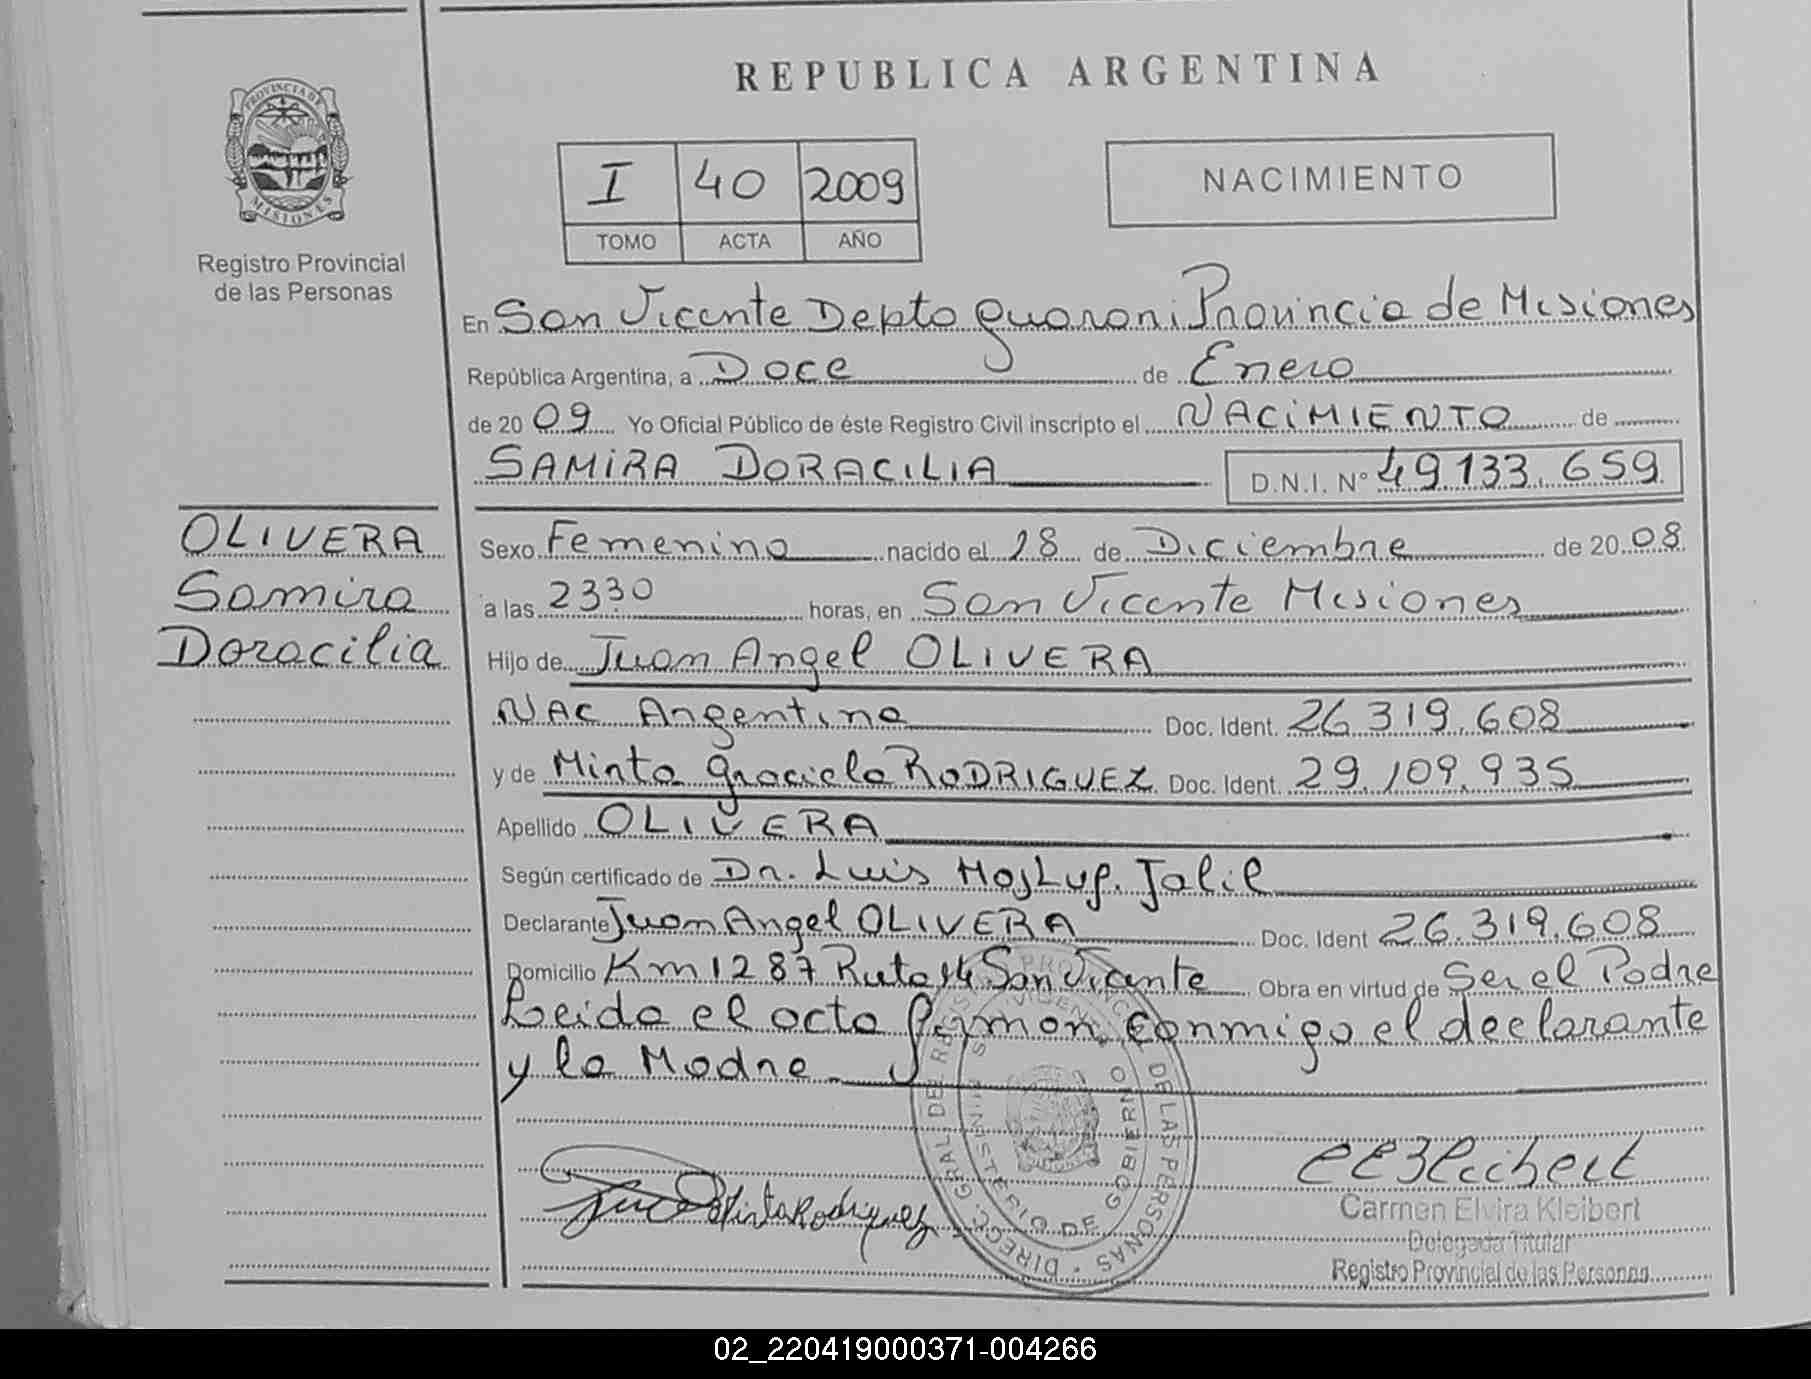 REPUBLICA ARGENTINA
PROVINCIA DE
MISIONES
Registro Provincial
de las Personas
I 40 2009
TOMO ACTA AÑO
NACIMIENTO
En San Vicente Depto Guarani Provincia de Misiones
República Argentina, a Doce de Enero
de 2009 Yo Oficial Público de éste Registro Civil inscripto el NACIMIENTO de
SAMIRA DORACILIA D.N.I. Nº 49.133.659
OLIVERA
Samira
Doracilia
Sexo Femenino nacido el 18 de Diciembre de 2008
a las 2330 horas, en San Vicente Misiones
Hijo de Juan Angel OLIVERA
NAC Argentina Doc. Ident. 26.319.608
y de Mirta Graciela RODRIGUEZ Doc. Ident. 29.109.935
Apellido OLIVERA
Según certificado de Dr. Luis Jalil
Declarante Juan Angel OLIVERA Doc. Ident 26.319.608
Domicilio Km 1287 Ruta 14 San Vicente Obra en virtud de Ser el Padre
Leida el acta firman conmigo el declarante
y la Madre
Mirta Rodriguez
DIRECC. GRAL. DEL REG. PROVINCIAL DE LAS PERSONAS
MINISTERIO DE GOBIERNO
Carmen Elvira Kleibert
Delegada Titular
Registro Provincial de las Personas
02_220419000371-004266